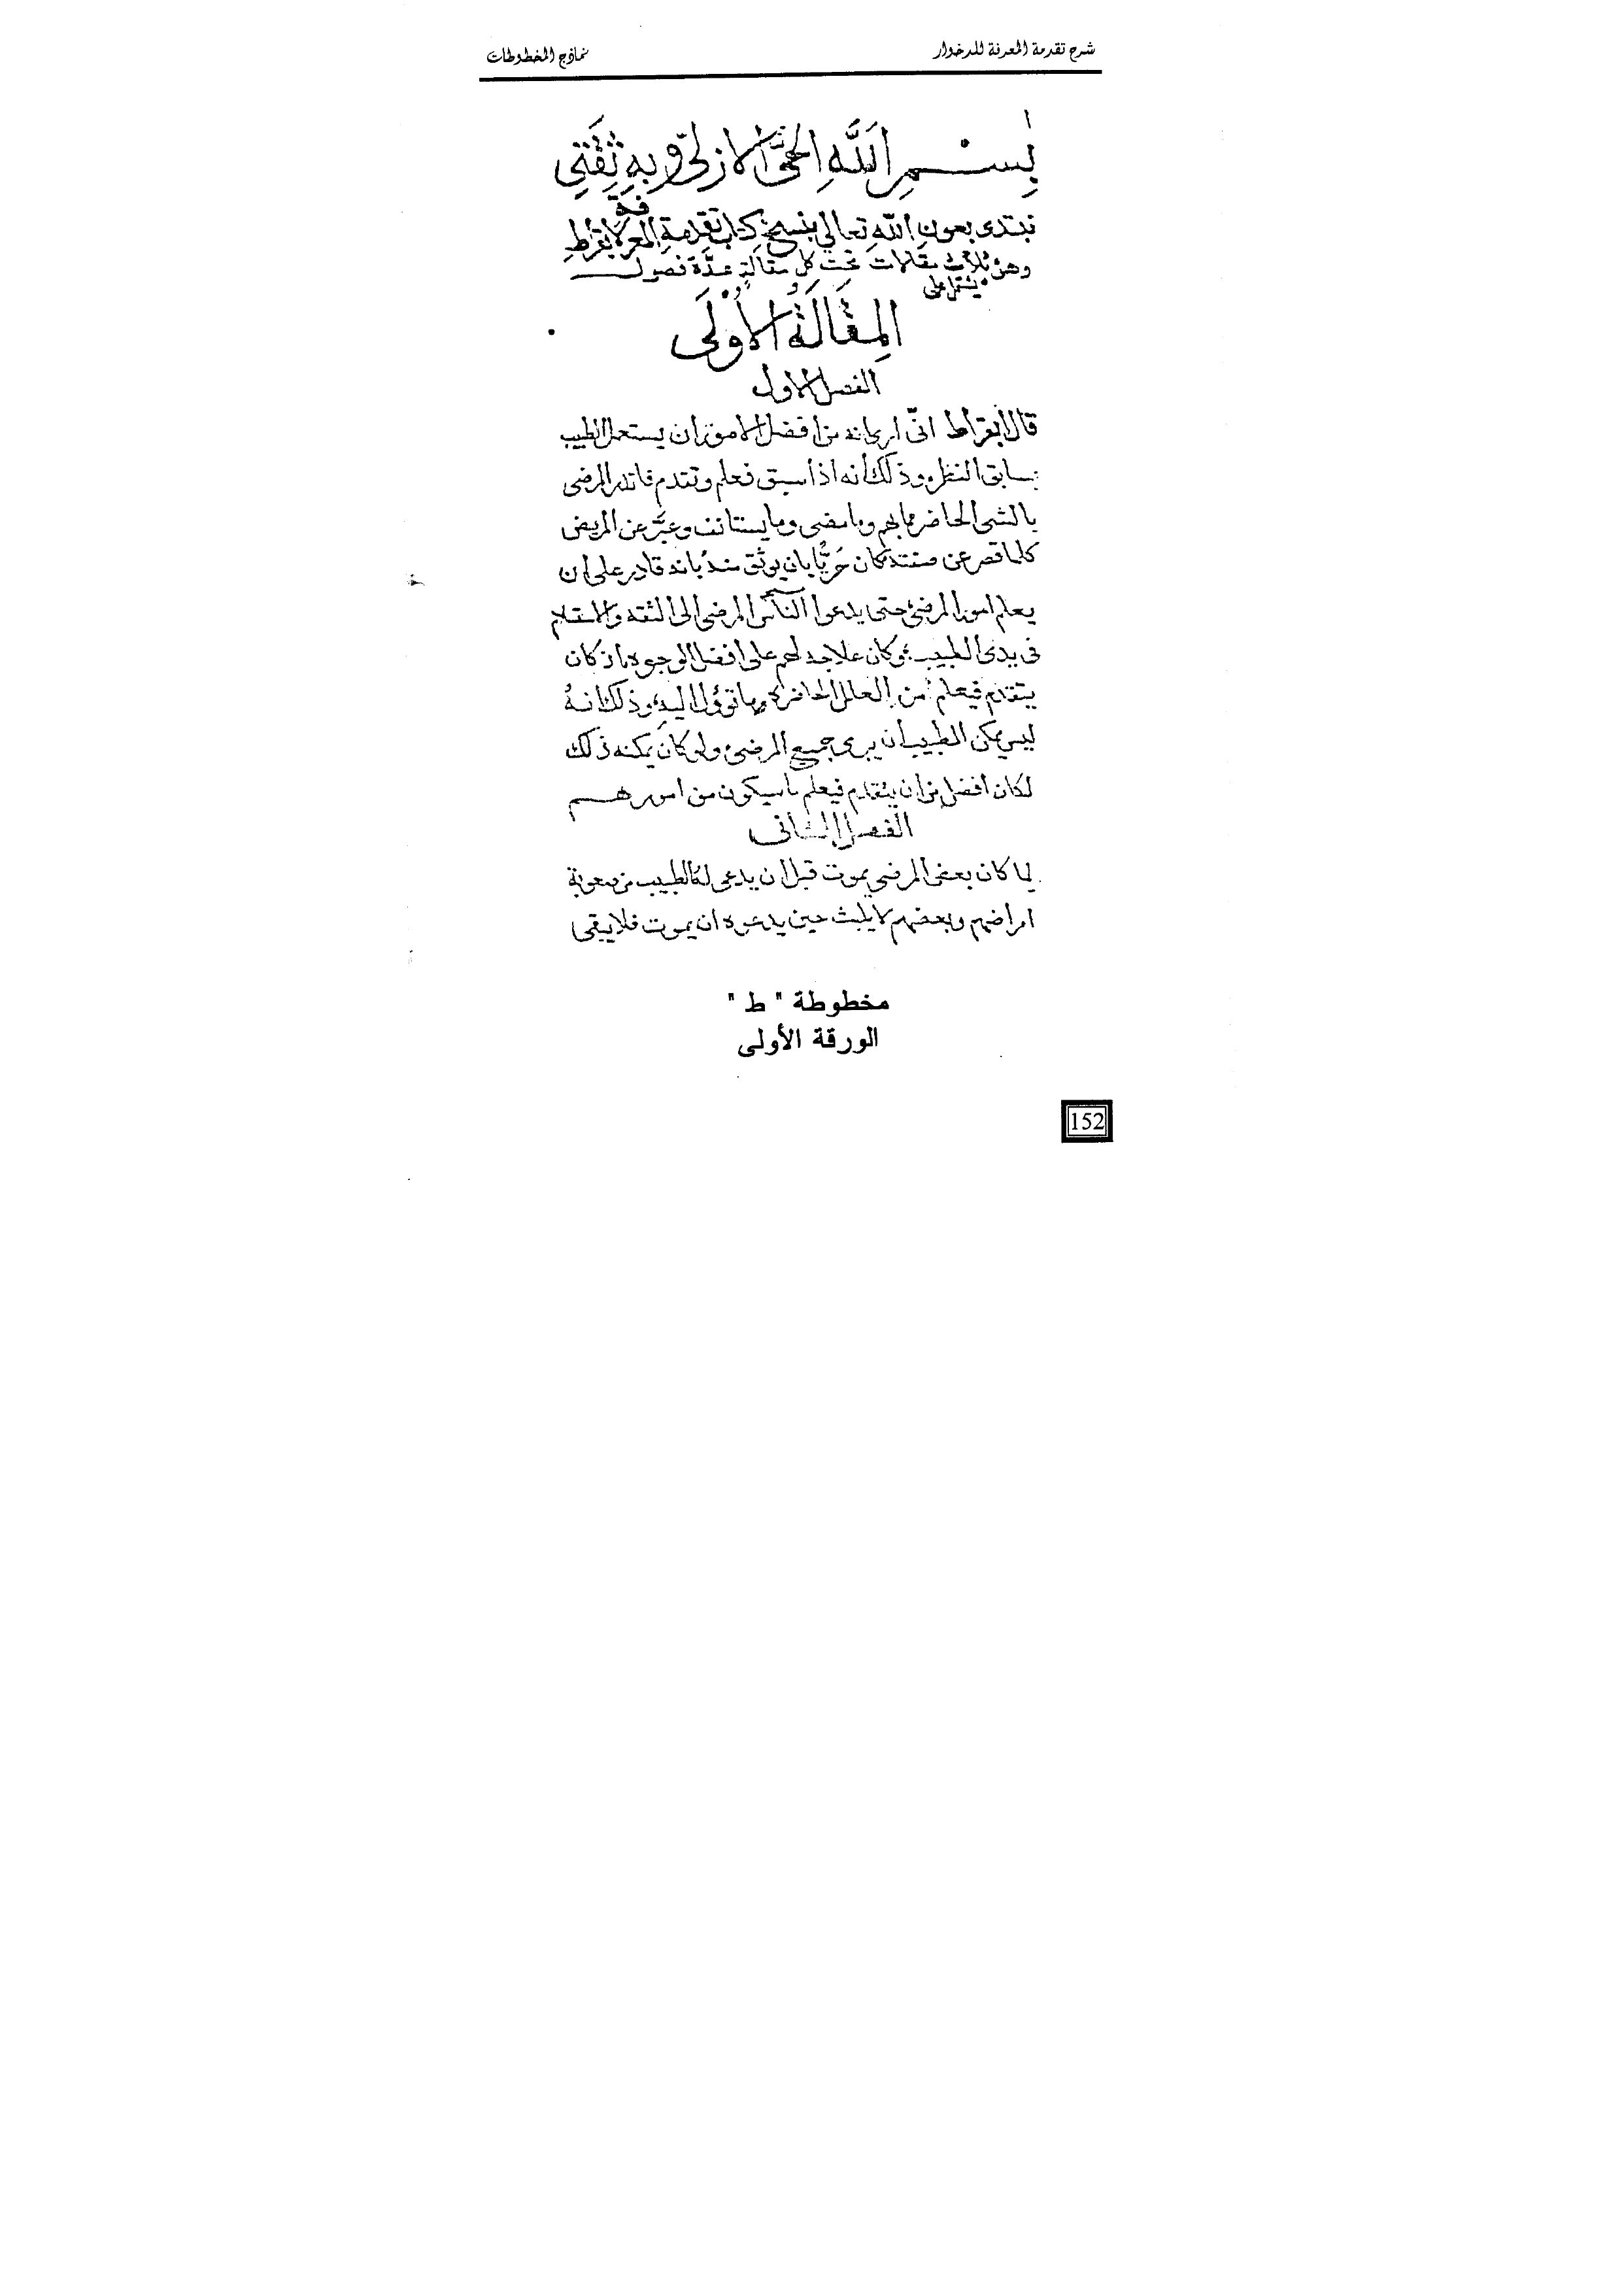 شرح تقدمة المعرفة للدخوار
نماذج المخطوطات
بِسْمِ اللَّهِ الحَيِّ الازليّ وبِهِ ثِقَتِي
نبتدى بعون اللّه تعالي بنسخ كتاب تقدمة المعرفة لابقراط
وهى ثلاث مقالات تحت كل مقالةٍ عدَّة فصول
يشتمل على
المقَالَةُ الاُولَى
الفصل الاول
قال ابقراط انّى ارى انه من افضل الامور ان يستعمل الطبيب
بسابق النظر وذلك أنه اذا سبق فعلم وتقدم فانذر المرضى
بالشى الحاضر مما بهم وما مضى وما يستانف وعبَّر عن المريض
كلما قصر عن صفته كان حَرِيًّا بان يوثق منهُ بانه قادر على ان
يعلم امور المرضى حتى يدعوا النأس المرضى الى الثقه والاستسلام
فى يدى الطبيب؛ وكان علاجه لهم على افضل الوجوه اذ كان
يتقدم فيعلم من العلل الحاضرة ما تؤول اليه؛ وذلك انهُ
ليس يمكن الطبيب أن يبرى جميع المرضى ولو كان يمكنه ذلك
لكان أفضل من ان يتقدم فيعلم ما سيكون من امورهم
الفصل الثانى
لما كان بعض المرضى يموت قبل ان يدعى له الطبيب من صعوبة
امراضهم وبعضهم لا يلبث حين يدعوه ان يموت فلا يبقى
مخطوطة " ط "
الورقة الأولى
152